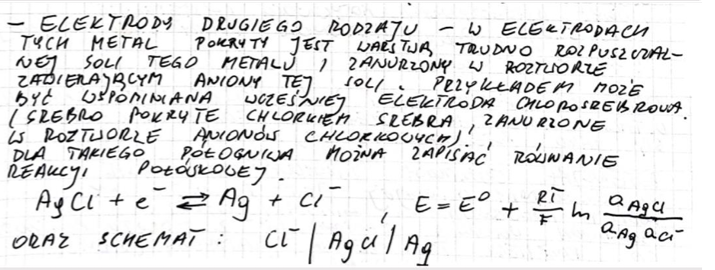 – ELEKTRODY DRUGIEGO RODZAJU – W ELEKTRODACH
TYCH METAL POKRYTY JEST WARSTWĄ TRUDNO ROZPUSZCZAL-
NEJ SOLI TEGO METALU, ZANURZONY W ROZTWORZE
ZAWIERAJĄCYM ANIONY TEJ SOLI. PRZYKŁADEM MOŻE
BYĆ WSPOMINIANA WCZEŚNIEJ ELEKTRODA CHLOROSREBROWA.
(SREBRO POKRYTE CHLORKIEM SREBRA, ZANURZONE
W ROZTWORZE ANIONÓW CHLORKOWYCH),
DLA TAKIEGO PÓŁOGNIWA MOŻNA ZAPISAĆ RÓWNANIE
REAKCJI POŁÓWKOWEJ.
AgCl + e⁻ ⇄ Ag + Cl⁻, E = E⁰ + RT/F ln a_AgCl/(a_Ag a_Cl⁻)
ORAZ SCHEMAT: Cl⁻ | AgCl | Ag